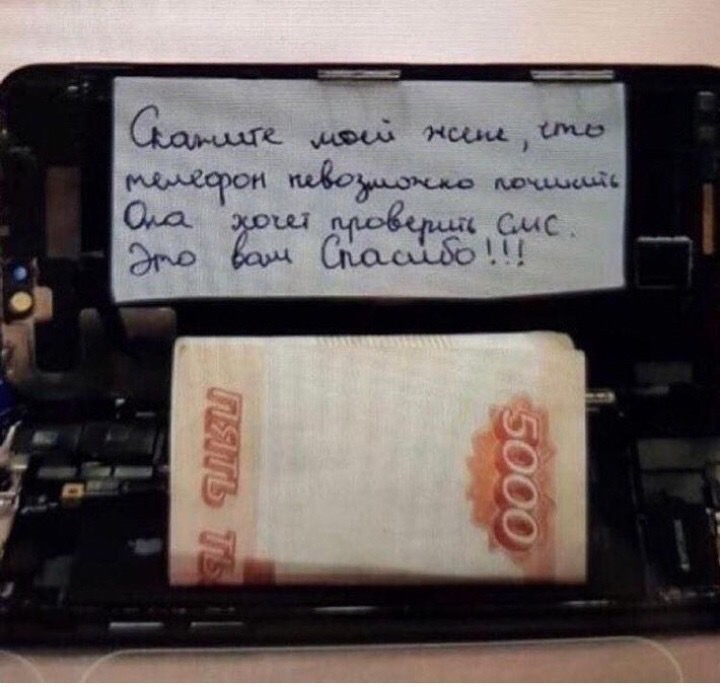 Скажите моей жене, что
телефон невозможно починить
Она хочет проверить смс.
Это вам Спасибо!!!
ПЯТЬ ТЫ
5000